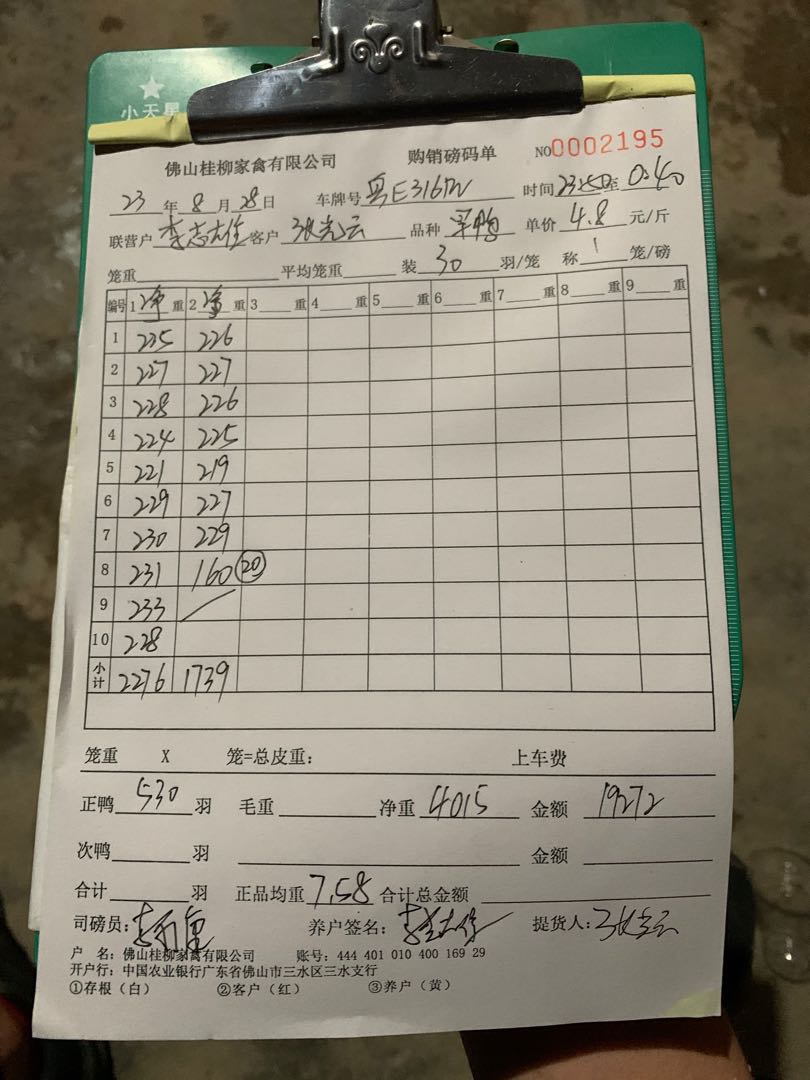 小天星
佛山桂柳家禽有限公司 购销磅码单 NO0002195
23年8月28日 车牌号粤E 时间23:50至0:40
联营户李志佳 客户张光云 品种 单价4.8元/斤
笼重 平均笼重 装30羽/笼 称1笼/磅
编号 1净重 2净重 3重 4重 5重 6重 7重 8重 9重
1 235 226
2 227 227
3 228 226
4 224 225
5 221 219
6 229 227
7 230 229
8 231 160 20
9 233
10 228
小计 2276 1739
笼重 X 笼=总皮重: 上车费
正鸭530羽 毛重 净重4015 金额19272
次鸭 羽 金额
合计 羽 正品均重7.58 合计总金额
司磅员: 养户签名:李志佳 提货人:张光云
户 名:佛山桂柳家禽有限公司 账号:444 401 010 400 169 29
开户行:中国农业银行广东省佛山市三水区三水支行
①存根(白) ②客户(红) ③养户(黄)